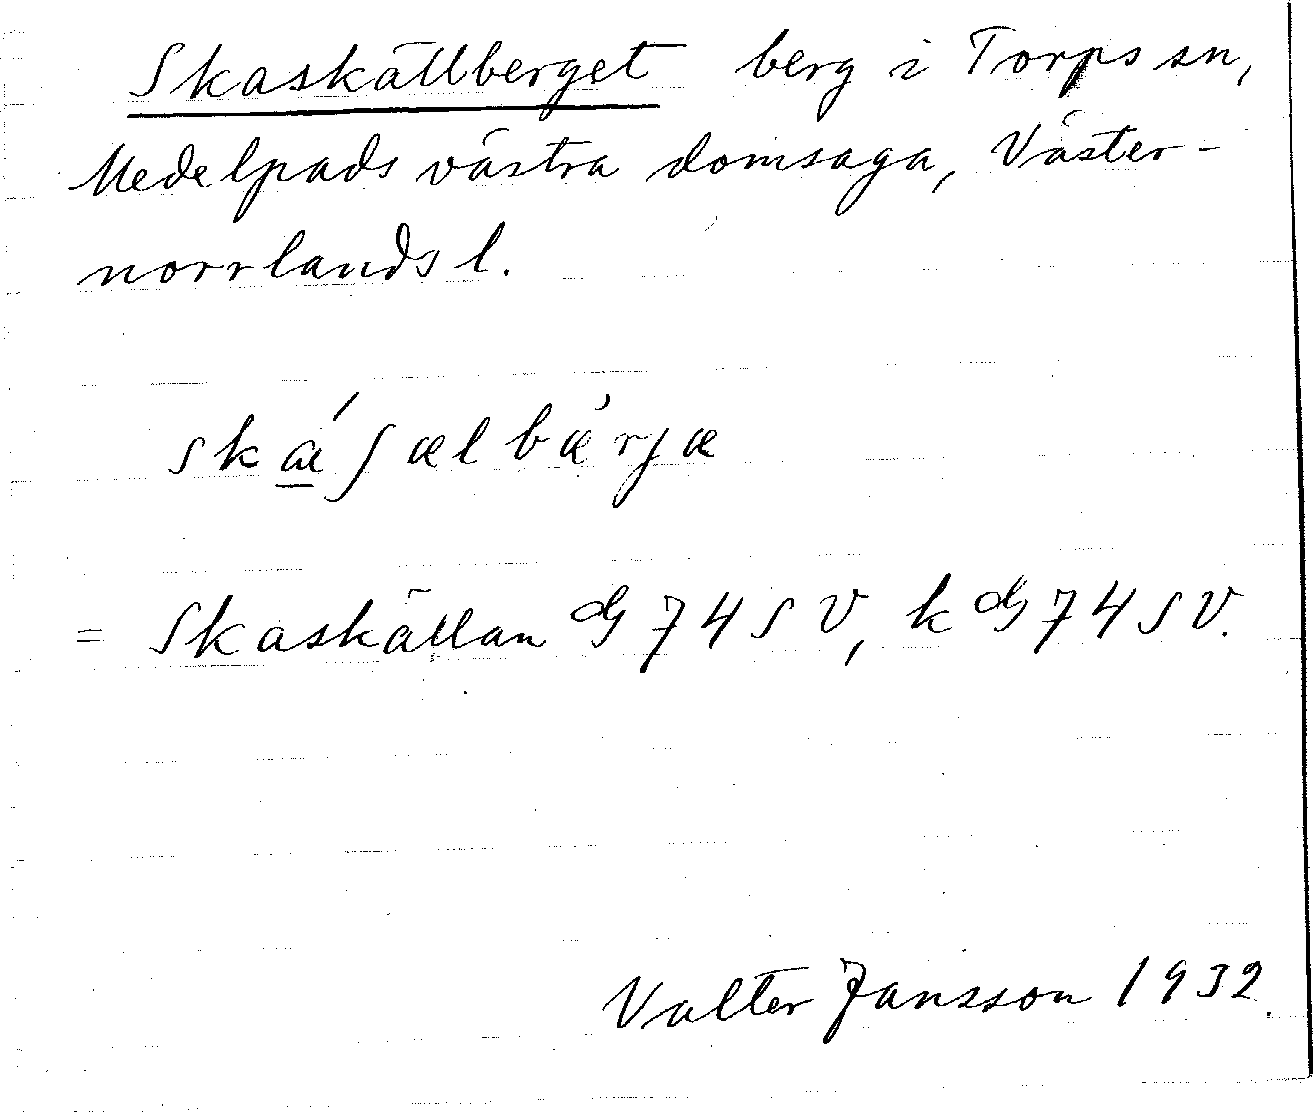 Skaskällberget berg i Torps sn,
Medelpads västra domsaga, Väster-
norrlands l.
skǽʃælbærjæ
= Skaskällan dG 74 SV, k dG 74 SV.
Valter Jansson 1932.